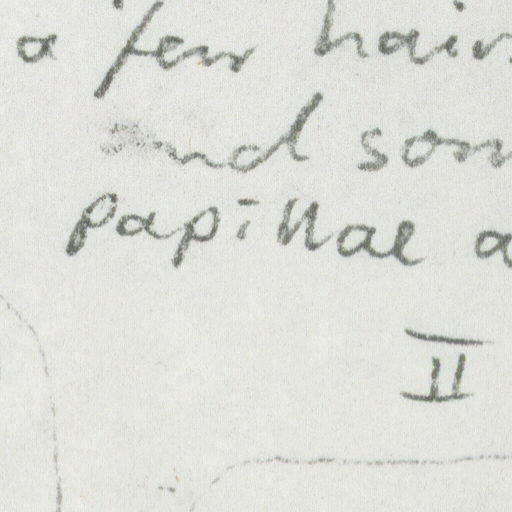 a few hairs
and som
papillae a
II